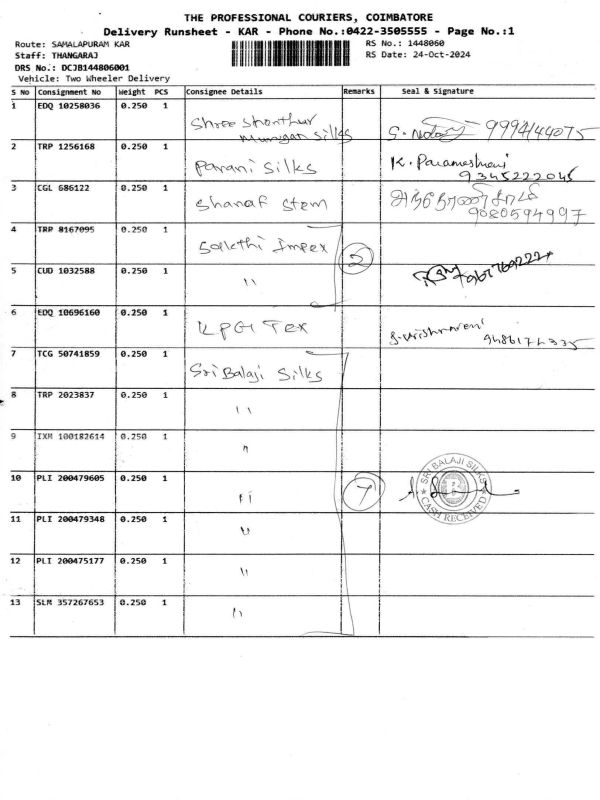 THE PROFESSIONAL COURIERS, COIMBATORE
Delivery Runsheet - KAR - Phone No.:0422-3505555 - Page No.:1
Route: SAMALAPURAM KAR
RS No.: 1448060
Staff: THANGARAJ
RS Date: 24-Oct-2024
DRS No.: DCJB144806001
Vehicle: Two Wheeler Delivery
S No Consignment No Weight PCS Consignee Details Remarks Seal & Signature
1 EDQ 10258036 0.250 1
Shree Shanthur
Murugan Silks 9994144075
2 TRP 1256168 0.250 1
Parani Silks K. Parameshwari
9345222045
3 CGL 686122 0.250 1
Sharaf Stem
9080594997
4 TRP 8167095 0.250 1
Sakthi Impex 2
5 CUD 1032588 0.250 1
"
6 EDQ 10696160 0.250 1
KPG Tex
7 TCG 50741859 0.250 1
Sri Balaji Silks
8 TRP 2023837 0.250 1
"
9 IXM 100182614 0.250 1
"
10 PLI 200479605 0.250 1
" 7 SRI BALAJI SILKS
CASH RECEIVED
11 PLI 200479348 0.250 1
"
12 PLI 200475177 0.250 1
"
13 SLM 357267653 0.250 1
"